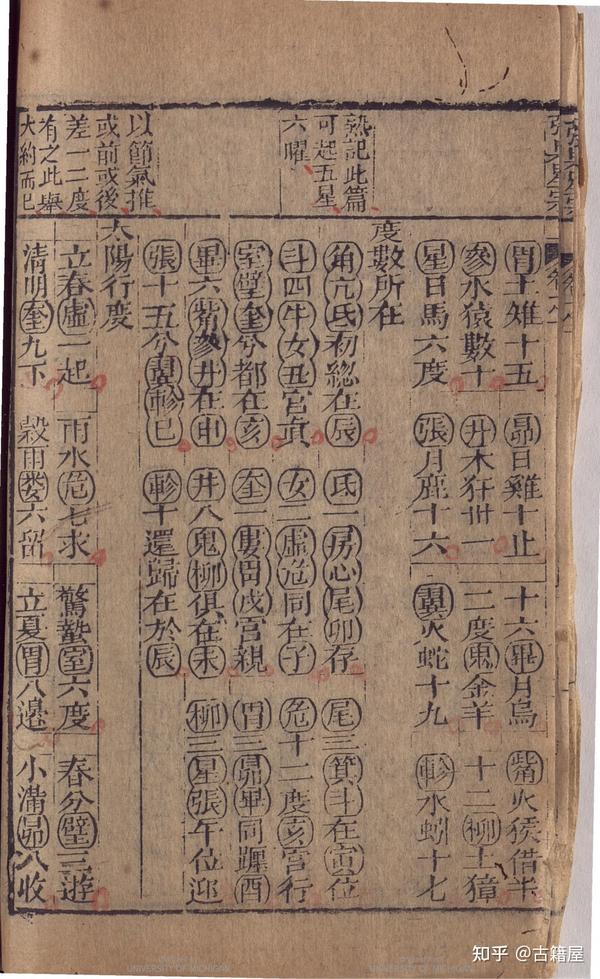 胃土雉十五　昴日雞十止　十六畢月烏　觜火猴借半
參水猿數十　井木犴卅一　二度鬼金羊　十二柳土獐
星日馬六度　張月鹿十六　翼火蛇十九　軫水蚓十七
度數所在
角亢氐初總在辰　氐一房心尾卯存　尾三箕斗在寅位
斗四牛女丑宮眞　女二虛危同在子　危十二度亥宮行
室壁奎兮都在亥　奎一婁胃戌宮親　胃三昴畢同躔酉
畢六觜參井在申　井八鬼柳俱在未　柳三星張午位迎
張十五兮翼軫巳　軫十還歸在於辰
太陽行度
立春虛一起　雨水危七求　驚蟄室六度　春分壁三遊
清明奎九下　穀雨婁六留　立夏胃八邊　小滿昴八收
熟記此篇
可起五星
六曜
以節氣推
或前或後
差一二度
有之此舉
大約而已
知乎 @古籍屋
UNIVERSITY OF MICHIGAN